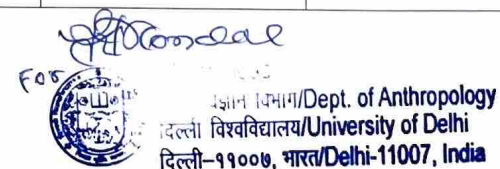 For
विज्ञान विभाग/Dept. of Anthropology
दिल्ली विश्वविद्यालय/University of Delhi
दिल्ली-११००७, भारत/Delhi-11007, India